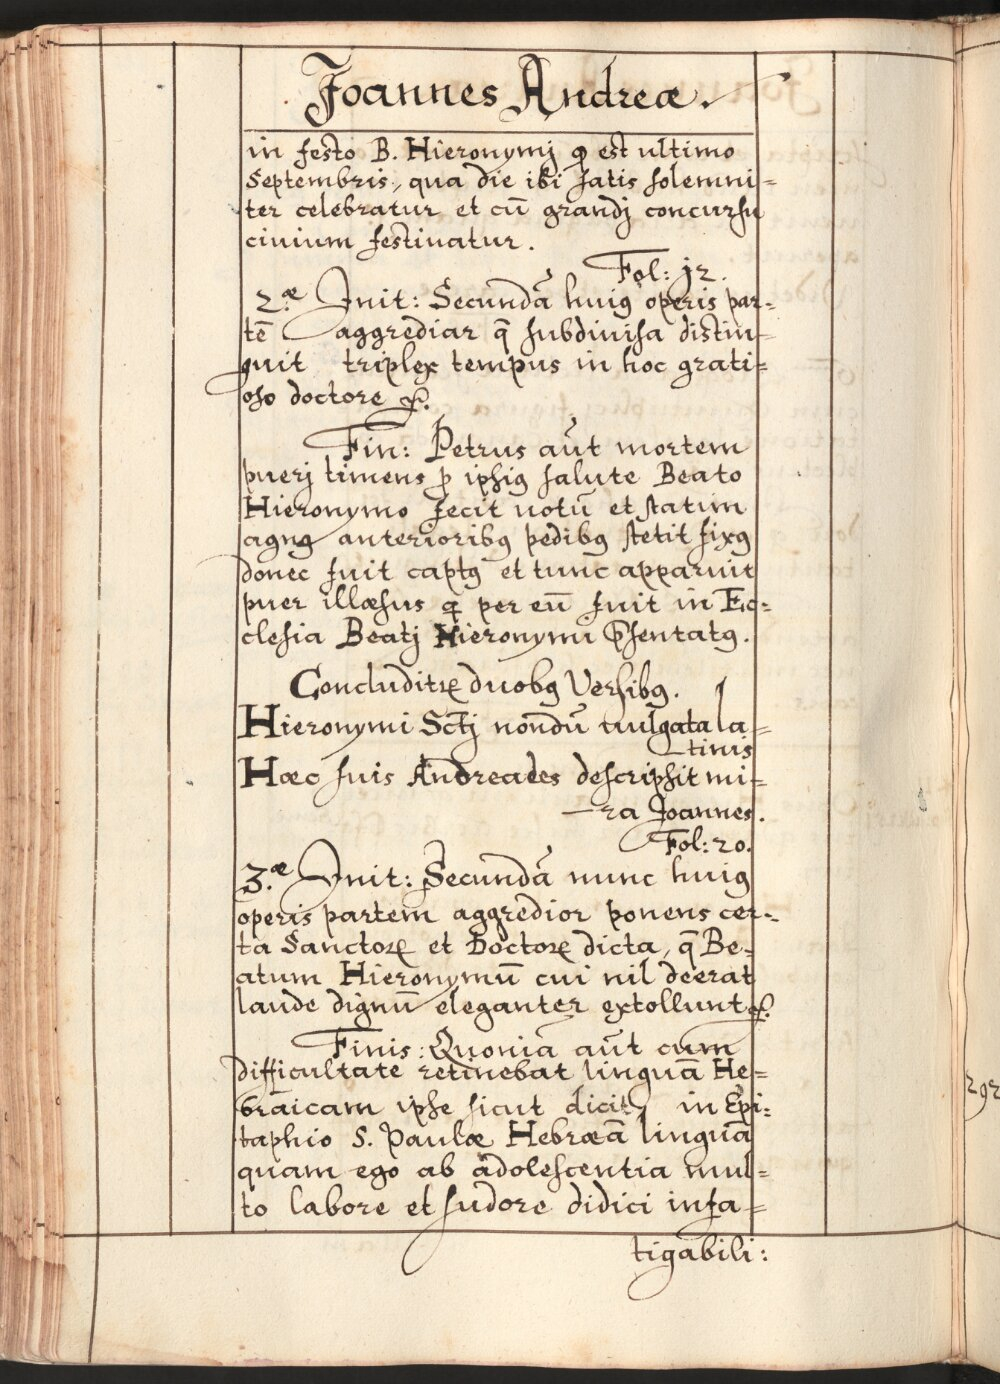 Joannes Andreæ.
in festo B. Hieronymj q̃ est ultimo
Septembris, qua die ibi satis solemni=
ter celebratur et cū grandj concursu
ciuium festiuatur.
Fol: 12.
2.æ Init: Secundā huiꝰ operis par=
tē aggrediar q̄ subdiuisa distin=
guit triplex tempus in hoc grati=
oso doctore &.
Fin: Petrus aūt mortem
puerj timens ꝓ ipsiꝰ salute Beato
Hieronymo fecit uotū et statim
agnꝰ anterioribꝰ pedibꝰ stetit fixꝰ
donec fuit captꝰ et tunc apparuit
puer illæsus q̃ per eū fuit in Ec=
clesia Beatj Hieronymi p̄sentatꝰ.
Concluditꝛ duobꝰ Versibꝰ.
Hieronymi Sctj nondū uulgata la=
tinis
Hæc suis Andreades descripsit mi=
ra Joannes.
Fol: 20.
3.æ Init: Secundā nunc huiꝰ
operis partem aggredior ponens cer=
ta Sanctorꝝ et Doctorꝝ dicta, q̄ Be=
atum Hieronymū cui nil deerat
laude dignū eleganter extollunt &.
Finis: Quoniā aūt cum
difficultate retinebat linguā He=
braicam ipse sicut dicit, in Epi=
taphio S. Paulæ Hebræā linguā
quam ego ab adolescentia mul=
to labore et sudore didici infa=
tigabili:
292